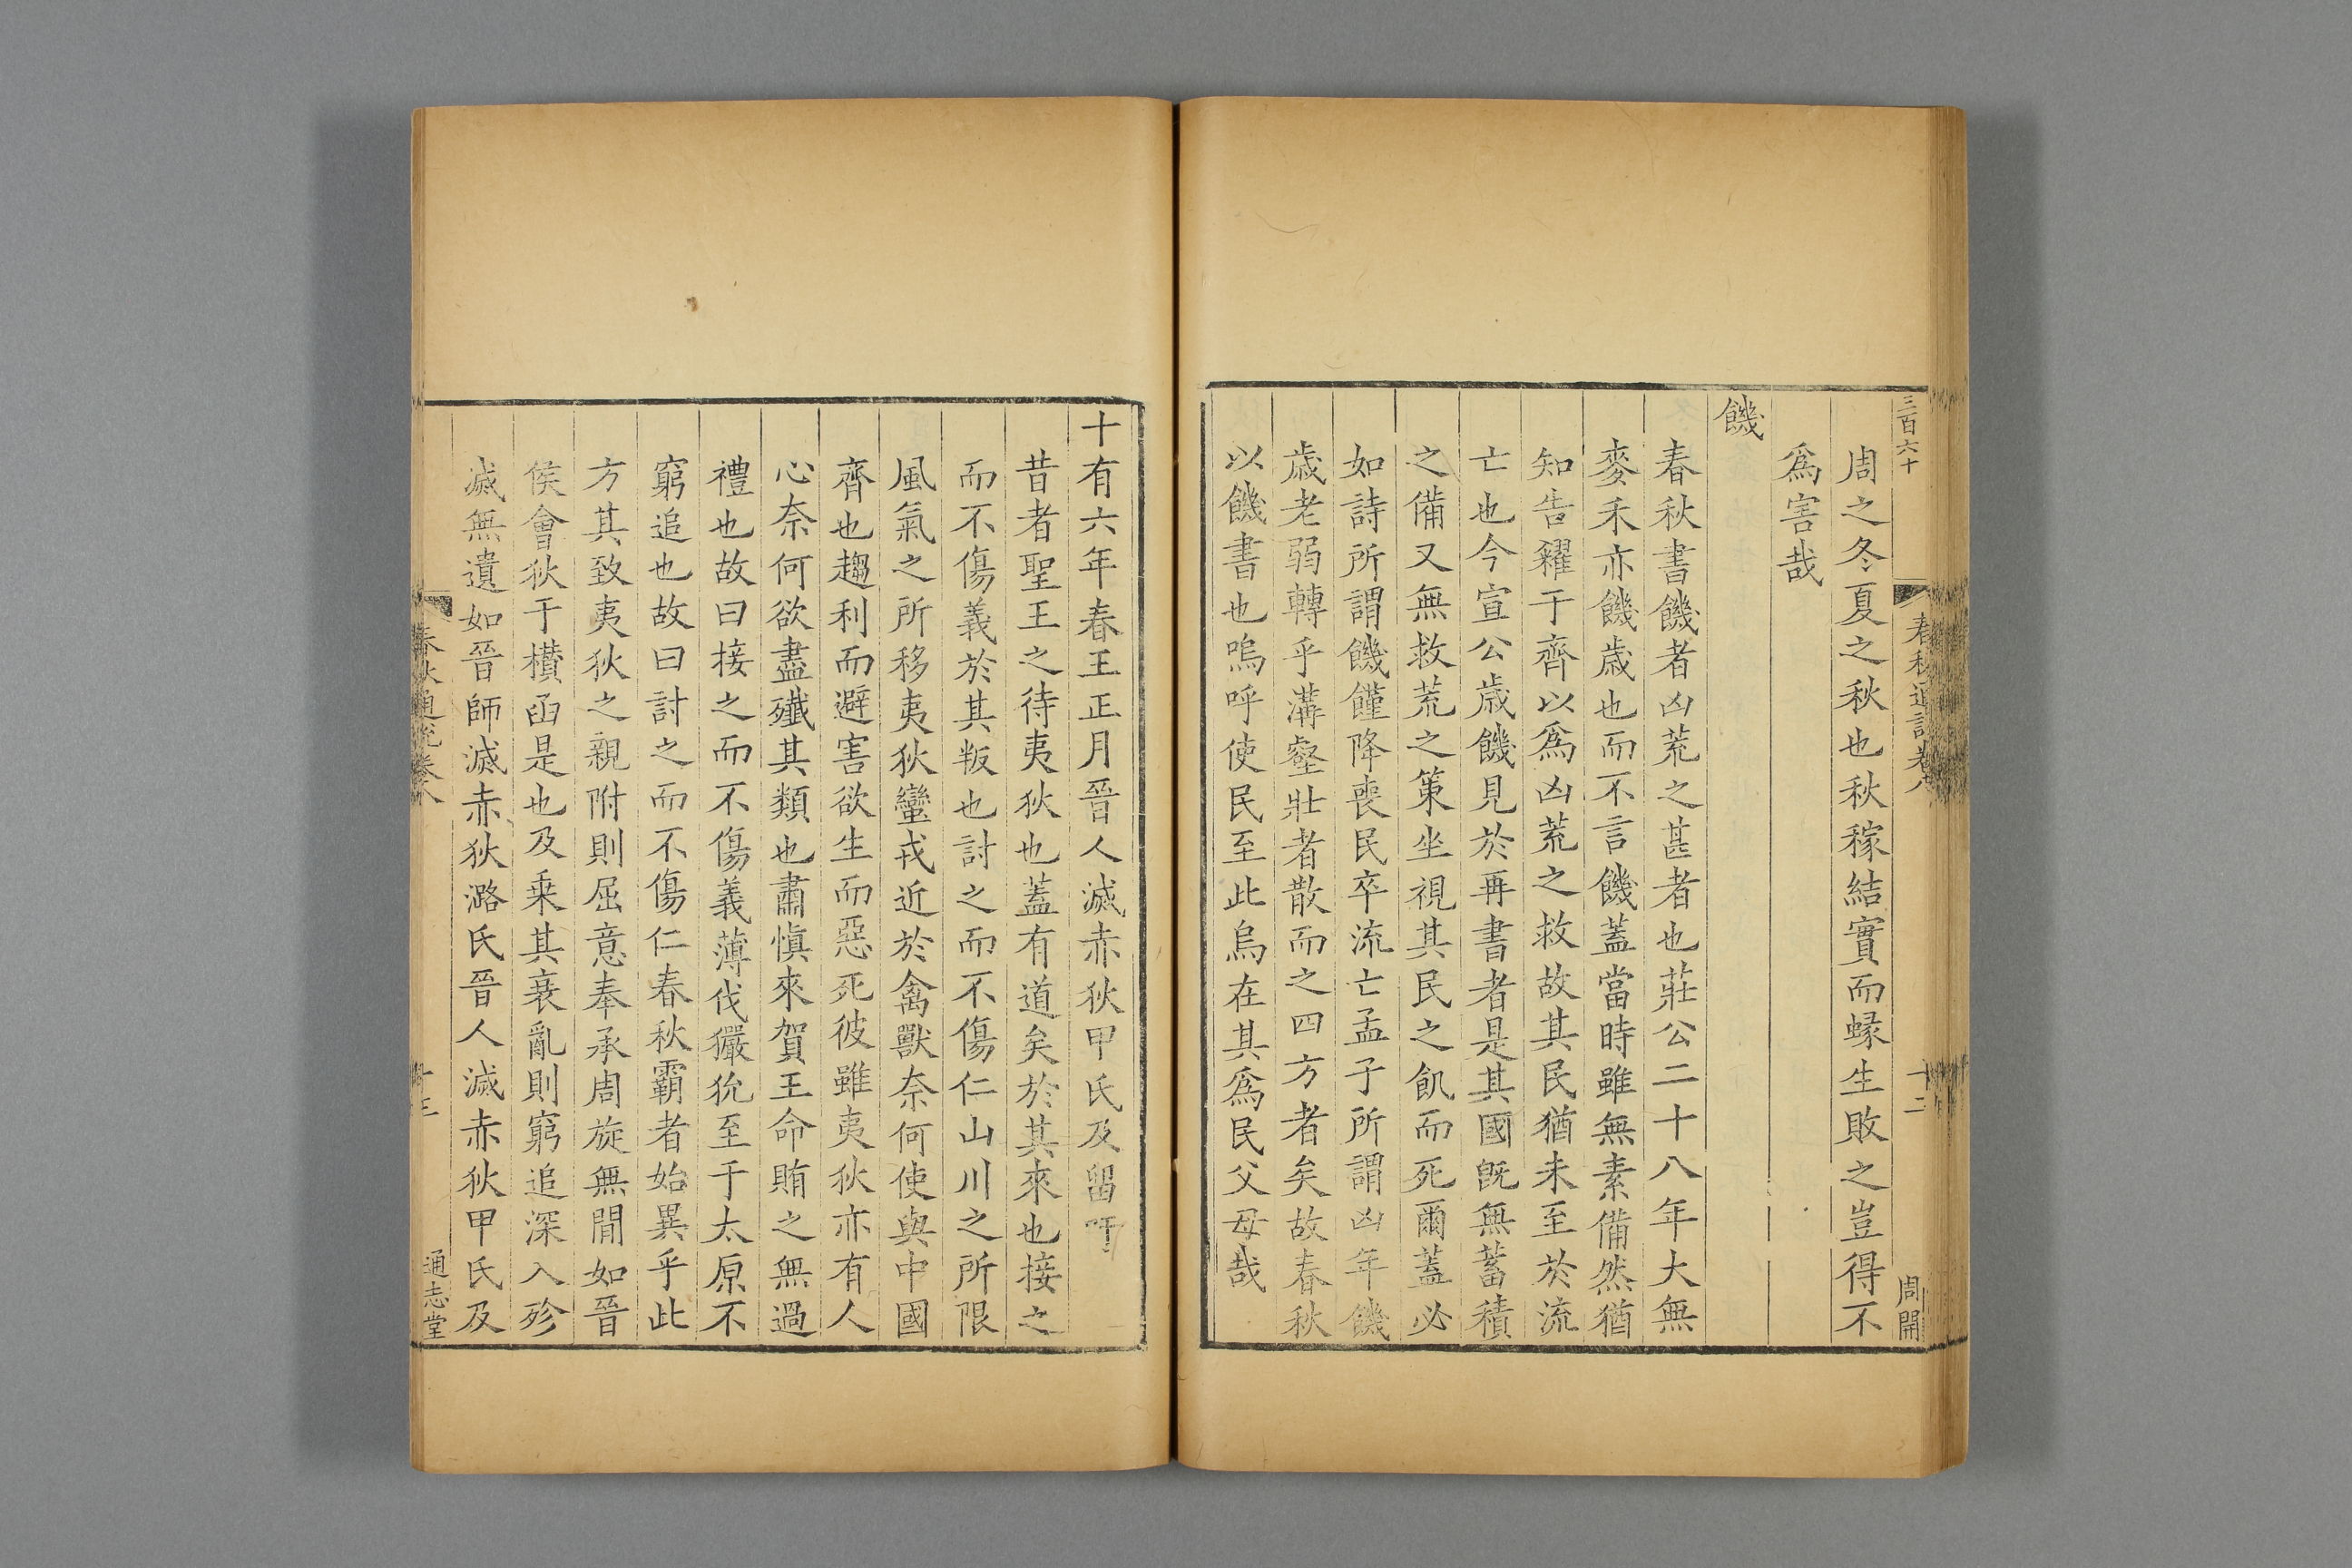 三百六十
春秋通說卷八
十二
周開
周之冬夏之秋也秋稼結實而蝝生敗之豈得不
爲害哉
饑
春秋書饑者凶荒之甚者也莊公二十八年大無
麥禾亦饑歲也而不言饑蓋當時雖無素備然猶
知告糴于齊以爲凶荒之救故其民猶未至於流
亡也今宣公歲饑見於再書者是其國旣無蓄積
之備又無救荒之策坐視其民之飢而死爾蓋必
如詩所謂饑饉降喪民卒流亡孟子所謂凶年饑
歲老弱轉乎溝壑壯者散而之四方者矣故春秋
以饑書也嗚呼使民至此烏在其爲民父母哉
十有六年春王正月晉人滅赤狄甲氏及留吁
昔者聖王之待夷狄也蓋有道矣於其來也接之
而不傷義於其叛也討之而不傷仁山川之所限
風氣之所移夷狄蠻戎近於禽獸奈何使與中國
齊也趨利而避害欲生而惡死彼雖夷狄亦有人
心奈何欲盡殲其類也肅愼來賀王命賄之無過
禮也故曰接之而不傷義薄伐玁狁至于太原不
窮追也故曰討之而不傷仁春秋霸者始異乎此
方其致夷狄之親附則屈意奉承周旋無間如晉
侯會狄于欑函是也及乗其衰亂則窮追深入殄
滅無遺如晉師滅赤狄潞氏晉人滅赤狄甲氏及
春秋通說卷八
十三
通志堂